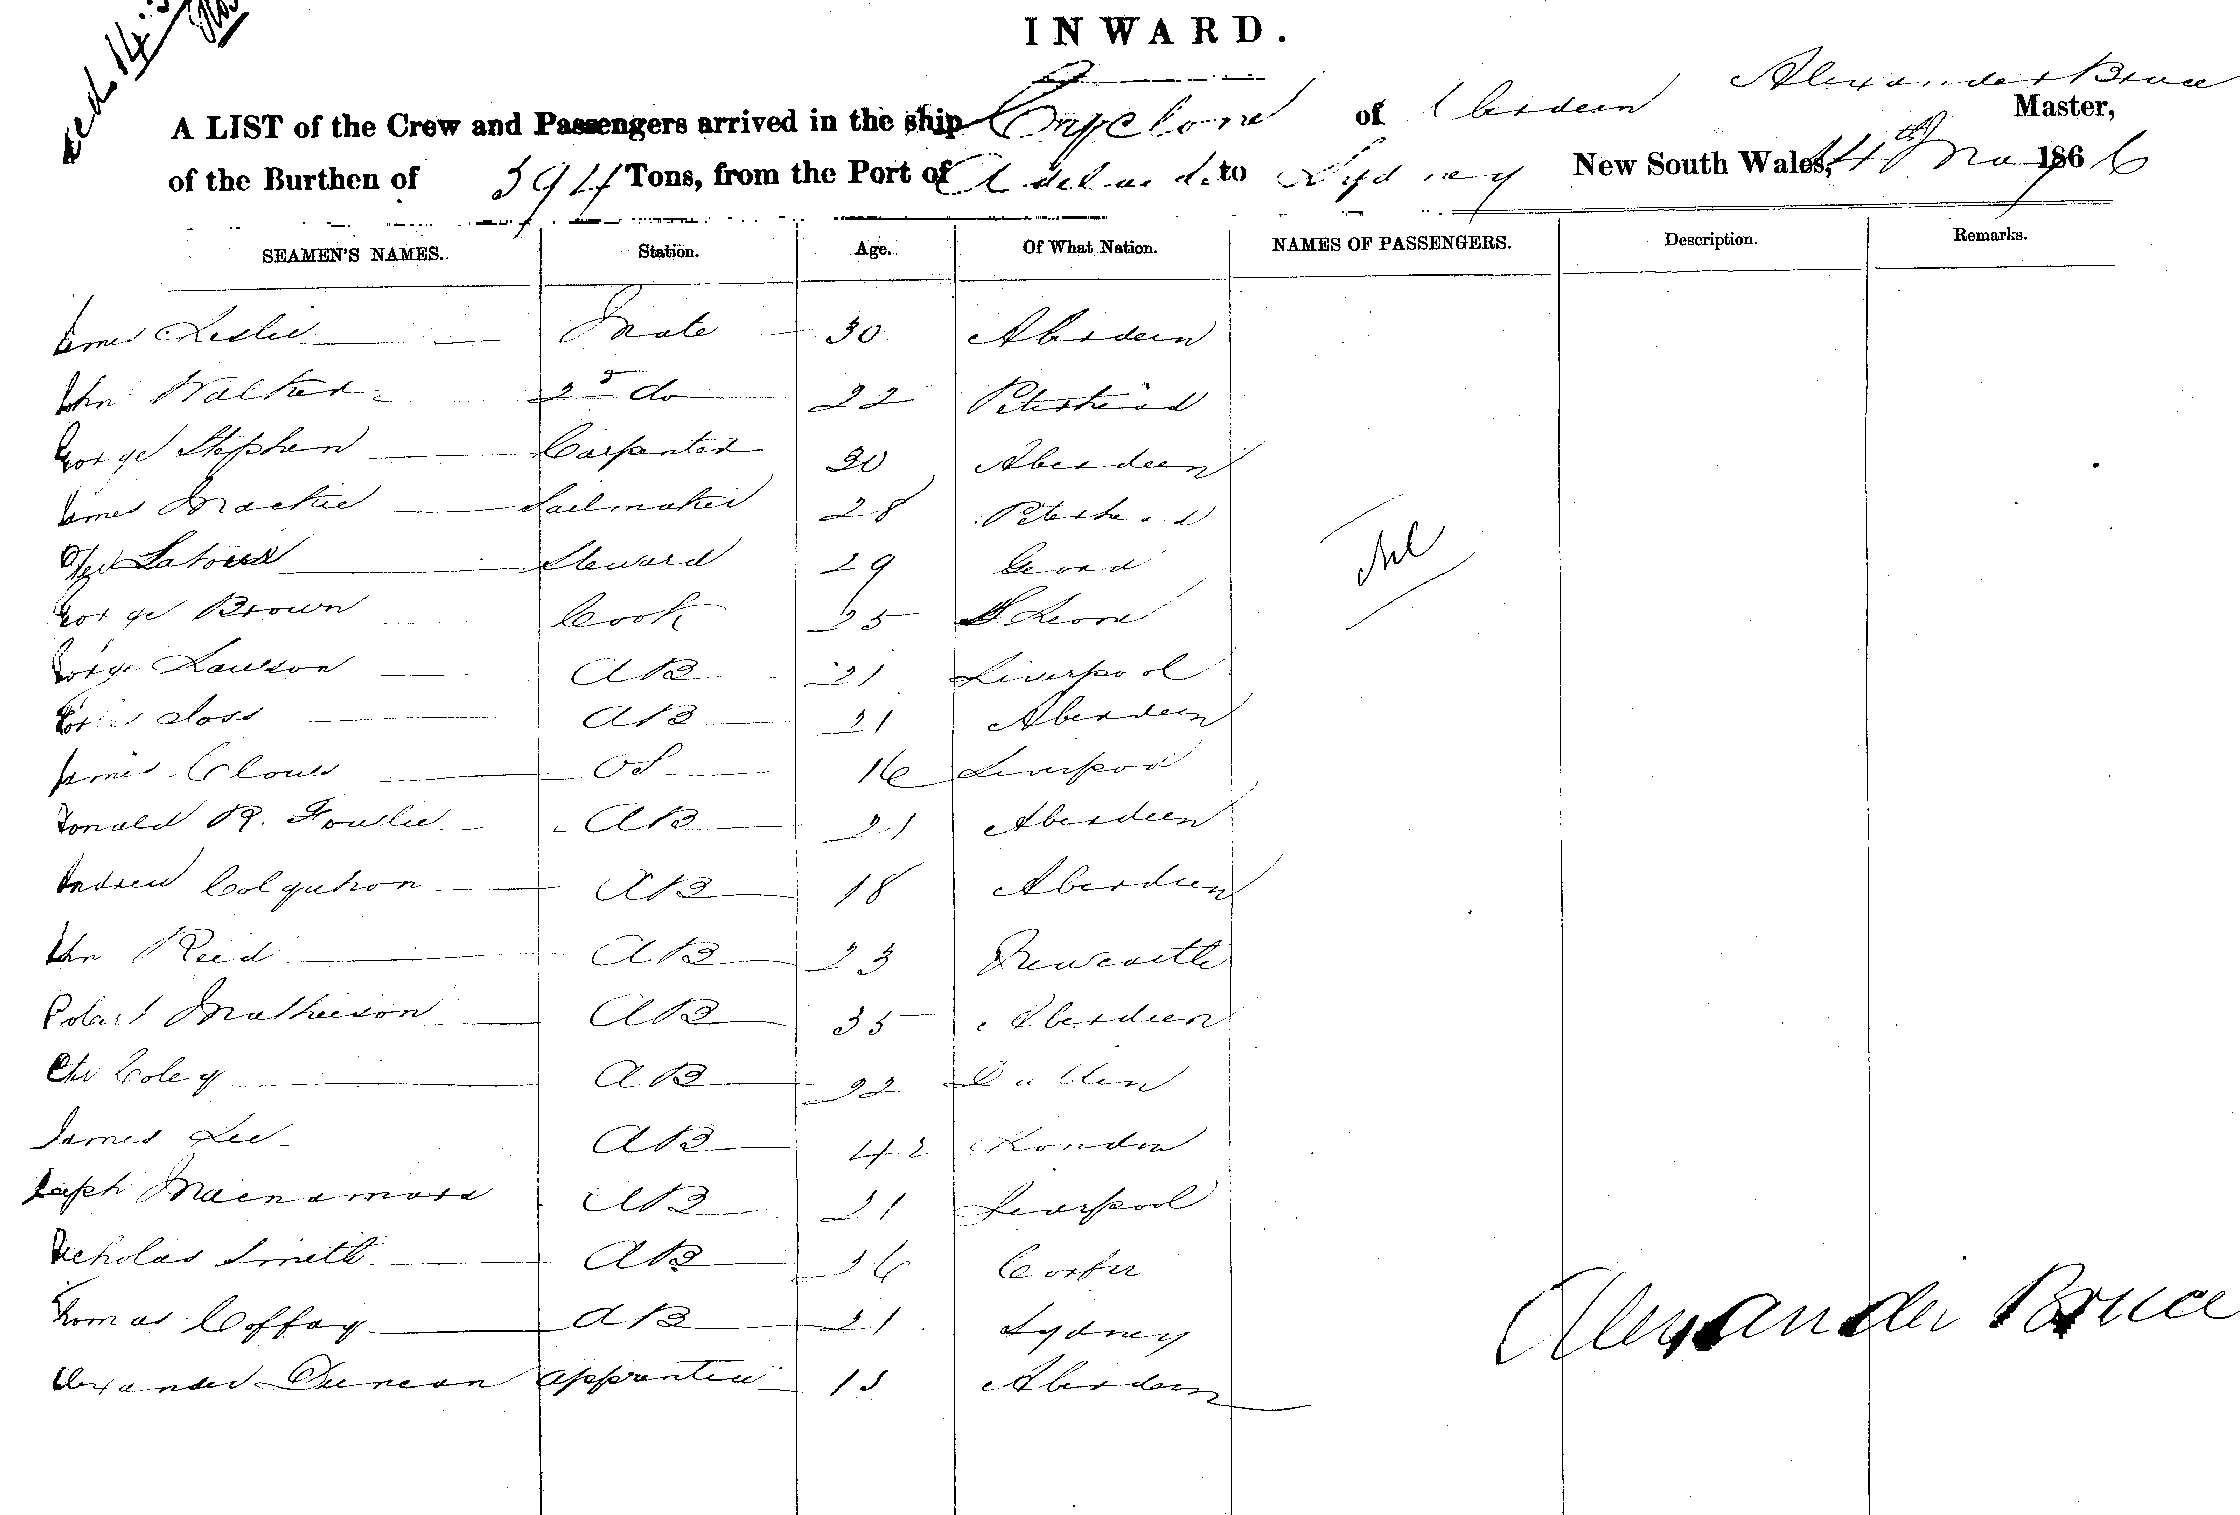 INWARD.
A LIST of the Crew and Passengers arrived in the ship of Aberdeen Alexander Bruce Master,
of the Burthen of 394 Tons, from the Port of Adelaide to Sydney New South Wales, 14th May 1866
SEAMEN'S NAMES. Station. Age. Of What Nation. NAMES OF PASSENGERS. Description. Remarks.
James Leslie Mate 30 Aberdeen
John Walker 2d do 22 Peterhead
George Stephen Carpenter Aberdeen
James Mackie Sailmaker 28 Peterhead
Steward 29
George Brown Cook 25
George Lawson AB 21 Liverpool
AB 21 Aberdeen
James OS 16 Liverpool
Donald R. Fowlie AB 21 Aberdeen
Andrew Colquhon AB 18 Aberdeen
John Reid AB 23 Newcastle
Robert Mathieson AB 35 Aberdeen
Chs Coley AB 22 Dublin
James Lee AB 42 London
Joseph AB 21 Liverpool
Nicholas Smith AB 26 Corfu
Thomas Coffay AB 21 Sydney
Alexander Duncan apprentice 15 Aberdeen
Nil
Alexander Bruce